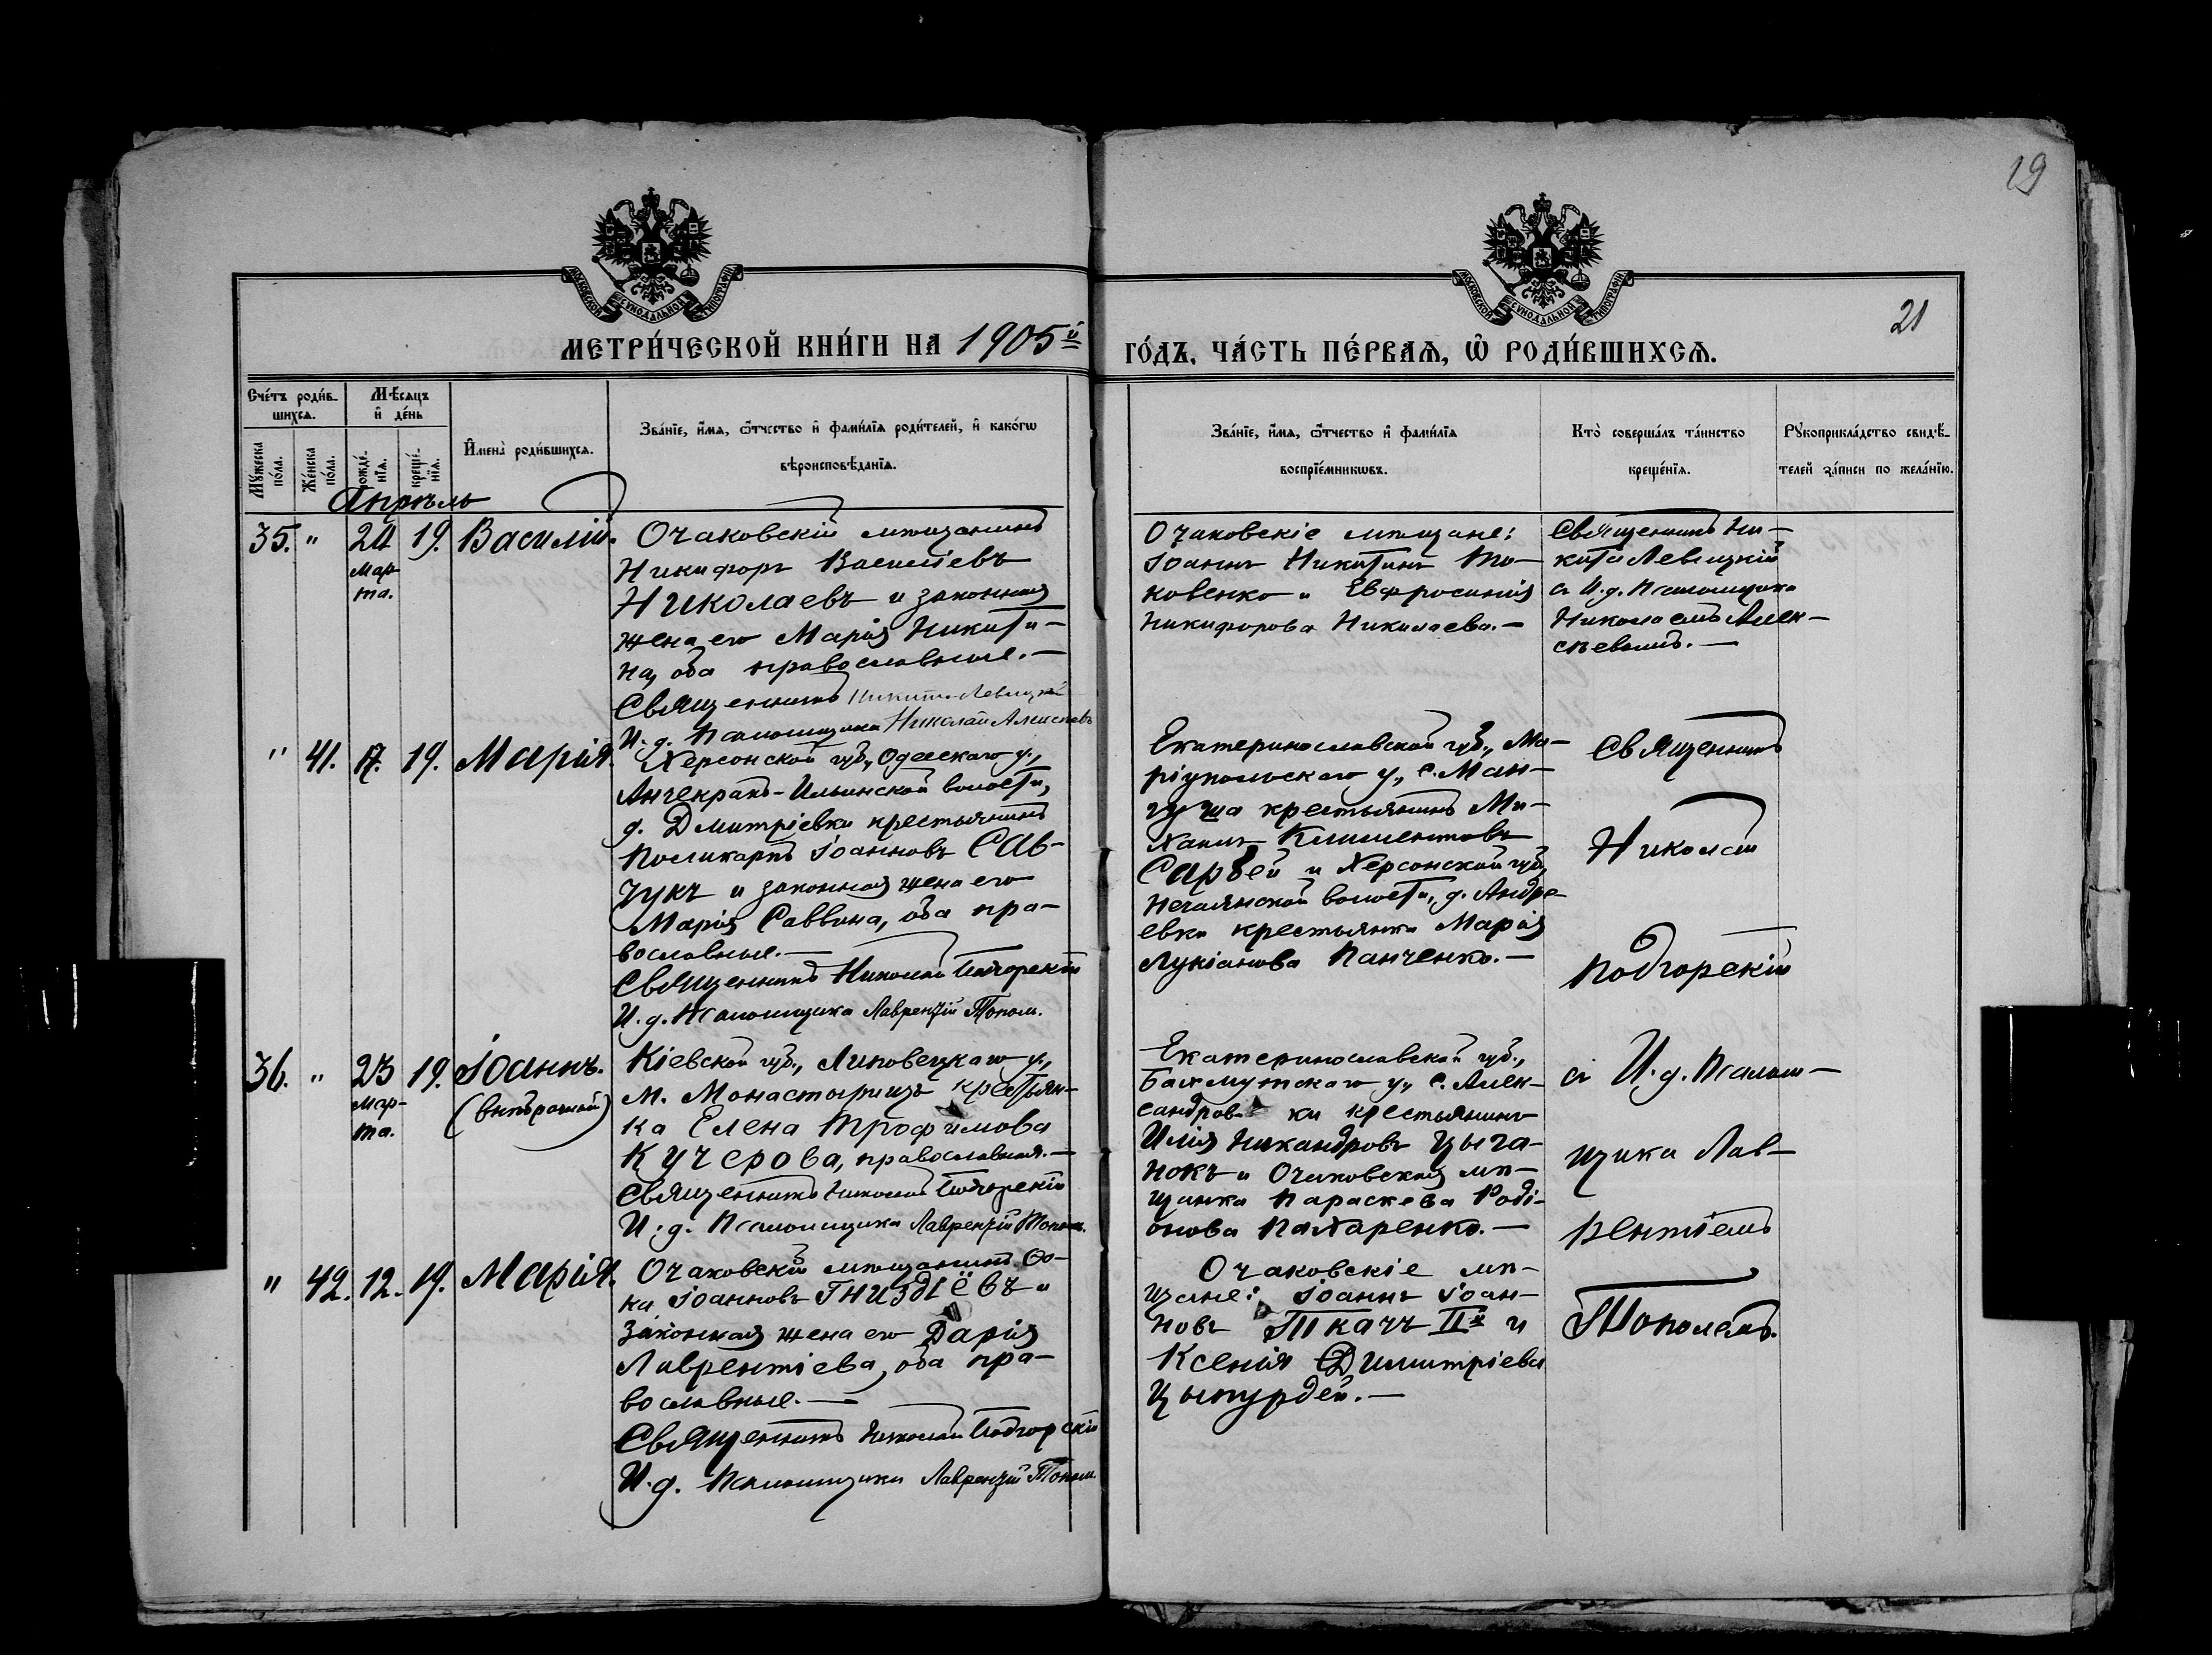 19
21
МОСКОВСКОЙ СѴНОДАЛЬНОЙ ТИПОГРАФІИ
МОСКОВСКОЙ СѴНОДАЛЬНОЙ ТИПОГРАФІИ
МЕТРИ́ЧЕСКОЙ КНИ́ГИ НА 1905й
ГО́ДЪ, ЧА́СТЬ ПЕ́РВАѦ, Ѡ҆ РОДИ́ВШИХСѦ.
Сче́тъ роди́в-
шихсѧ.
Мѣ́сѧцъ
и҆ де́нь
Мꙋ́жеска по́ла.
Же́нска по́ла.
рожде́-
нїѧ.
креще́-
нїѧ.
И҆мена̀ роди́вшихсѧ.
Зва́нїе, и҆́мѧ, ѻ҆́тчество и҆ фами́лїѧ роди́телей, и҆ како́гѡ
вѣроисповѣ́данїѧ.
Зва́нїе, и҆́мѧ, ѻ҆́тчество и҆ фами́лїѧ
воспрїе́мникѡвъ.
Кто̀ соверша́лъ та́инство
креще́нїѧ.
Рꙋкоприкла́дство свидѣ́-
телей за́писи по жела́нїю.
Апрѣль
35. " 24 19. Василій.
Мар-
та.
Очаковскій мѣщанинъ
Никифоръ Василіевъ
Николаевъ и законная
жена его Марія Никити-
на, оба православные.—
Священникъ Никита Левицкій
И. д. Псаломщика Николай Алексѣевъ
Очаковскіе мѣщане:
Іоаннъ Никитинъ То-
ковенко и Евфросинія
Никифорова Николаева.—
Священникъ Ни-
кита Левицкій
съ И. д. Псаломщика
Николаемъ Алек-
сѣевымъ.—
" 41. 17. 19. Марія.
Херсонской губ., Одесскаго у.,
Анчекракъ-Ильинской волости,
д. Дмитріевки крестьянинъ
Поликарпъ Іоанновъ Сав-
чукъ и законная жена его
Марія Саввина, оба пра-
вославные.—
Священникъ Николай Подгорскій
И. д. Псаломщика Лаврентій Тополь.
Екатеринославской губ., Ма-
ріупольскаго у., с. Ман-
гуша крестьянинъ Ми-
хаилъ Климентовъ
Сарбей и Херсонской губ,
Нечаянской волости, д. Андре-
евки крестьянка Марія
Лукіанова Панченко.—
Священникъ
Николай
Подгорскій
съ И. д. Псалом-
щика Лав-
рентіемъ
Тополемъ.
36. " 23 19. Іоаннъ.
Мар-
та.
(внѣбрачный)
Кіевской губ., Липовецкаго у.,
м. Монастырищъ крестьян-
ка Елена Трофимова
Кучерова, православная.—
Священникъ Николай Подгорскій
И. д. Псаломщика Лаврентій Тополь.
Екатеринославской губ.,
Бахмутскаго у., с. Алек-
сандров ки крестьянинъ
Илія Никандровъ Цыга-
нокъ и Очаковская мѣ-
щанка Параскева Роді-
онова Пахаренко.—
" 42. 12. 19. Марія.
Очаковскій мѣщанинъ Ѳо-
ка Іоанновъ Гниздіёвъ и
законная жена его Дарія
Лаврентіева, оба пра-
вославные.—
Священникъ Николай Подгорскій
И. д. Псаломщика Лаврентій Тополь.
Очаковскіе мѣ-
щане: Іоаннъ Іоан-
новъ Ткачъ IIй и
Ксенія Димитріева
Цыпурдей.—